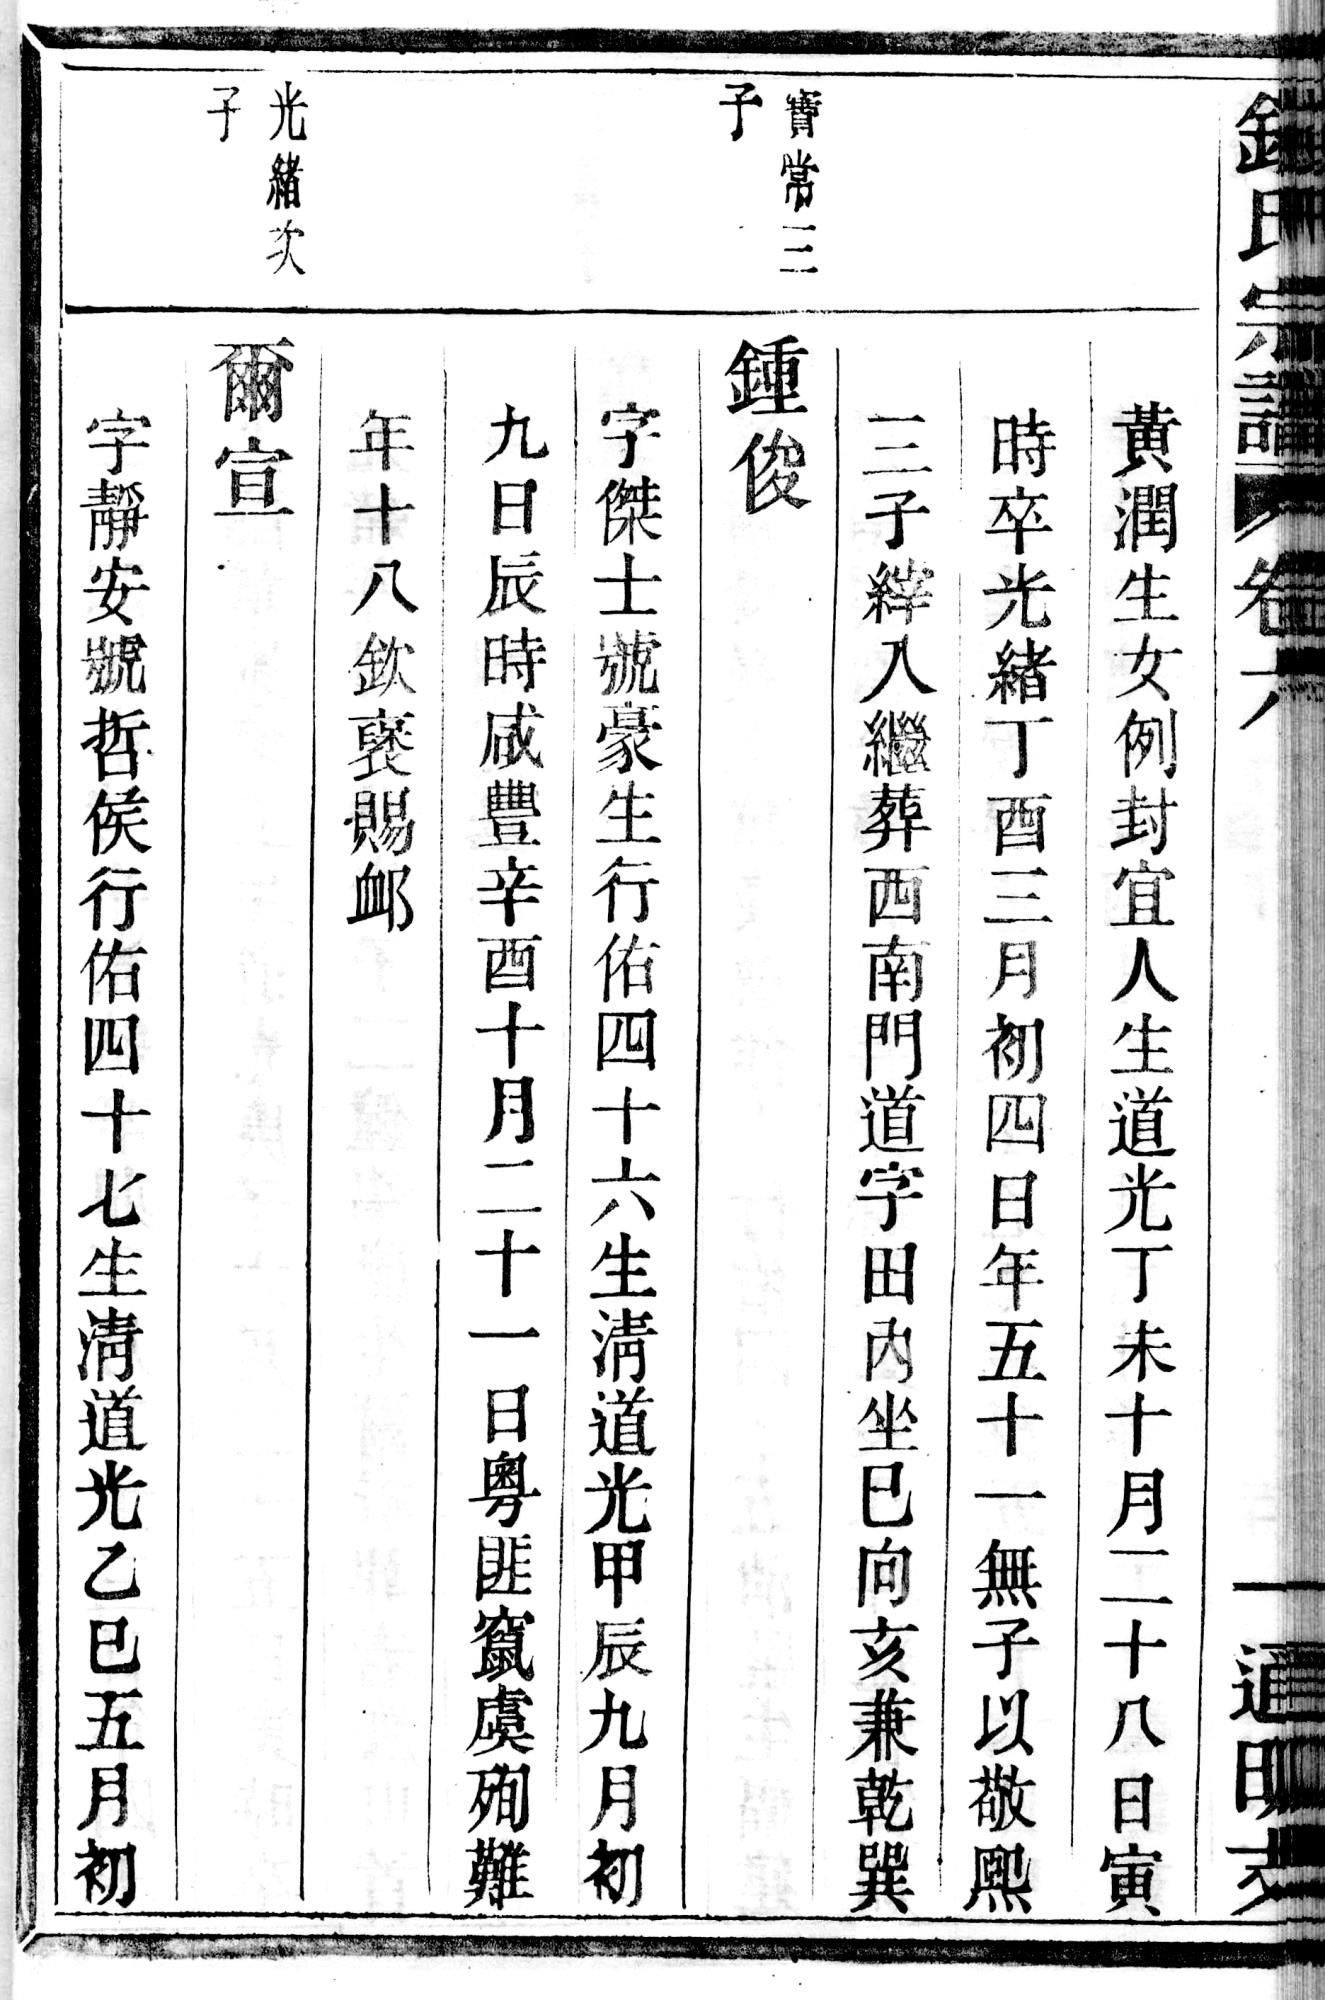 鍾氏宗譜 卷六
通明支
黃潤生女例封宜人生道光丁未十月二十八日寅
時卒光緒丁酉三月初四日年五十一無子以敬熙
三子縡入繼葬西南門道字田內坐巳向亥兼乾巽
寶常三
子
鍾俊
字傑士號豪生行佑四十六生淸道光甲辰九月初
九日辰時咸豐辛酉十月二十一日粵匪竄虞殉難
年十八欽褒賜卹
光緒次
子
爾宣
字靜安號哲侯行佑四十七生淸道光乙巳五月初